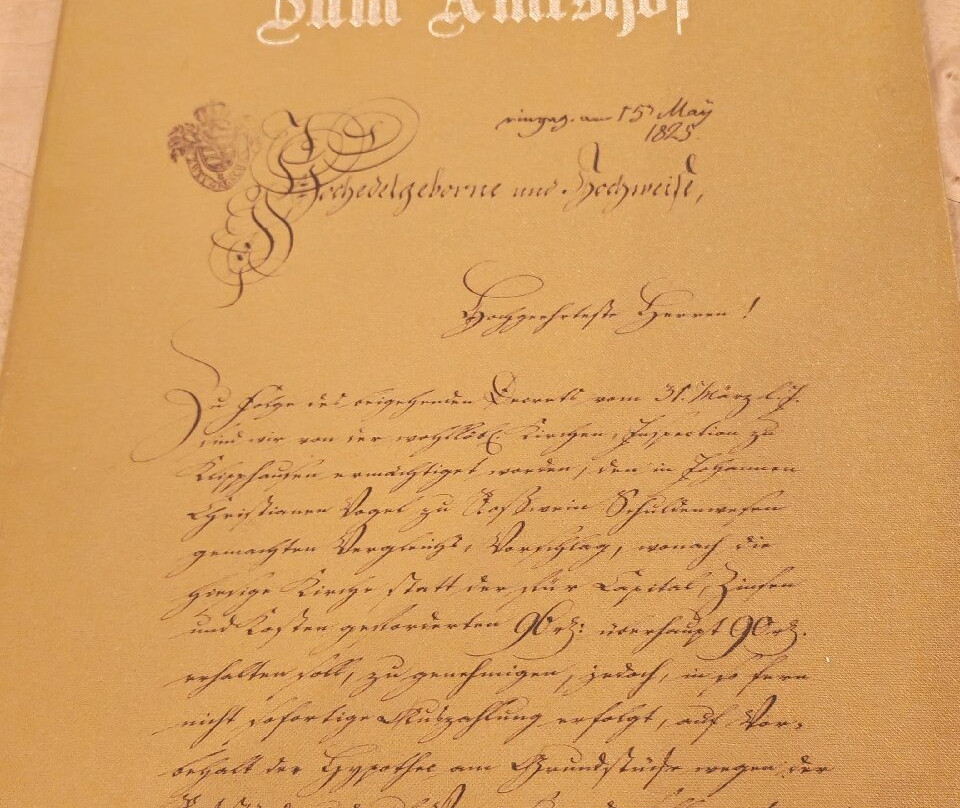 Zum Amtshof
eingeg. am 15 May
1825
Hochedelgeborne und Hochweise,
Hochgeehrteste Herren!
Zu Folge des beigehenden Decrets vom 31. März l. J.
sind wir von der wohllöbl. Kirchen, Inspection zu
Klipphausen ermächtiget worden, den in Johannen
Christianen Vogel zu Roßwein Schuldenwesen
gemachten Vergleichs, Vorschlag, wonach die
hiesige Kirche statt der für Capital, Zinsen
und Kosten geforderten überhaupt
erhalten soll, zu genehmigen, jedoch, in so fern
nicht sofortige Auszahlung erfolgt, auf Vor-
behalt der Hypothec am Grundstücke wegen der